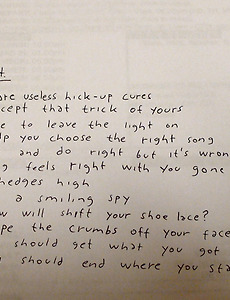 t.
are useless hick-up cures
cept that trick of yours
e to leave the light on
lp you choose the right song
and do right but it's wrong
g feels right with you gone
hedges high
a smiling spy
w will shift your shoe lace?
pe the crumbs off your face
should get what you got
u should end where you sta